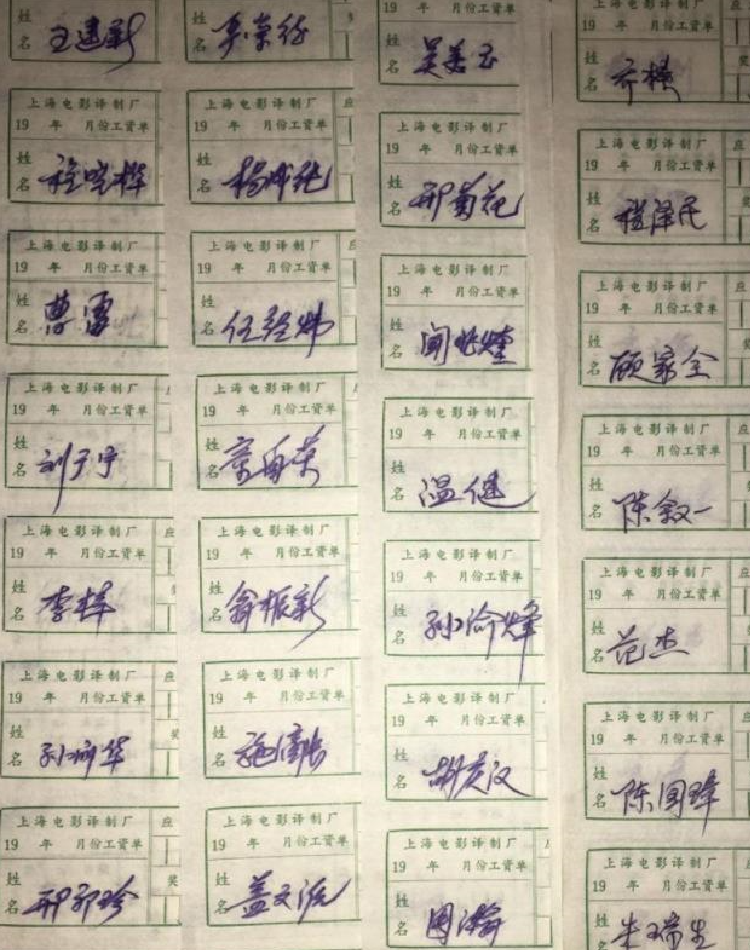 姓
名 王建新
上海电影译制厂
19 年 月份工资单
姓
名 程晓桦
上海电影译制厂
19 年 月份工资单
姓
名 曹雷
上海电影译制厂
19 年 月份工资单
姓
名 刘广宁
上海电影译制厂
19 年 月份工资单
姓
名 李梓
上海电影译制厂
19 年 月份工资单
姓
名
上海电影译制厂 应
19 年 月份工资单
姓 奖
名
姓
名
上海电影译制厂 应
19 年 月份工资单
姓
名 杨成纯
上海电影译制厂
19 年 月份工资单
姓
名 伍经纬
上海电影译制厂
19 年 月份工资单
姓
名 童自荣
上海电影译制厂
19 年 月份工资单
姓
名 翁振新
上海电影译制厂
19 年 月份工资单
姓
名
上海电影译制厂
19 年 月份工资单
姓
名 盖文源
19 年 月份工资单
姓
名 吴美玉
上海电影译制厂
19 年 月份工资单
姓
名 邢菊花
上海电影译制厂
19 年 月份工资单
姓
名 闻兆煃
上海电影译制厂
19 年 月份工资单
姓
名 温健
上海电影译制厂
19 年 月份工资单
姓
名 孙渝烽
上海电影译制厂
19 年 月份工资单
姓
名 胡庆汉
上海电影译制厂
19 年 月份工资单
姓
名 周瀚
上海电影译制厂 应
19 年 月份工资单
姓 奖
名 乔榛
上海电影译制厂 应
19 年 月份工资单
姓
名 程泽民
上海电影译制厂
19 年 月份工资单
姓
名 顾家全
上海电影译制厂
19 年 月份工资单
姓
名 陈叙一
上海电影译制厂
19 年 月份工资单
姓
名 范杰
上海电影译制厂
19 年 月份工资单
姓
名
上海电影译制厂
19 年 月份工资单
姓
名